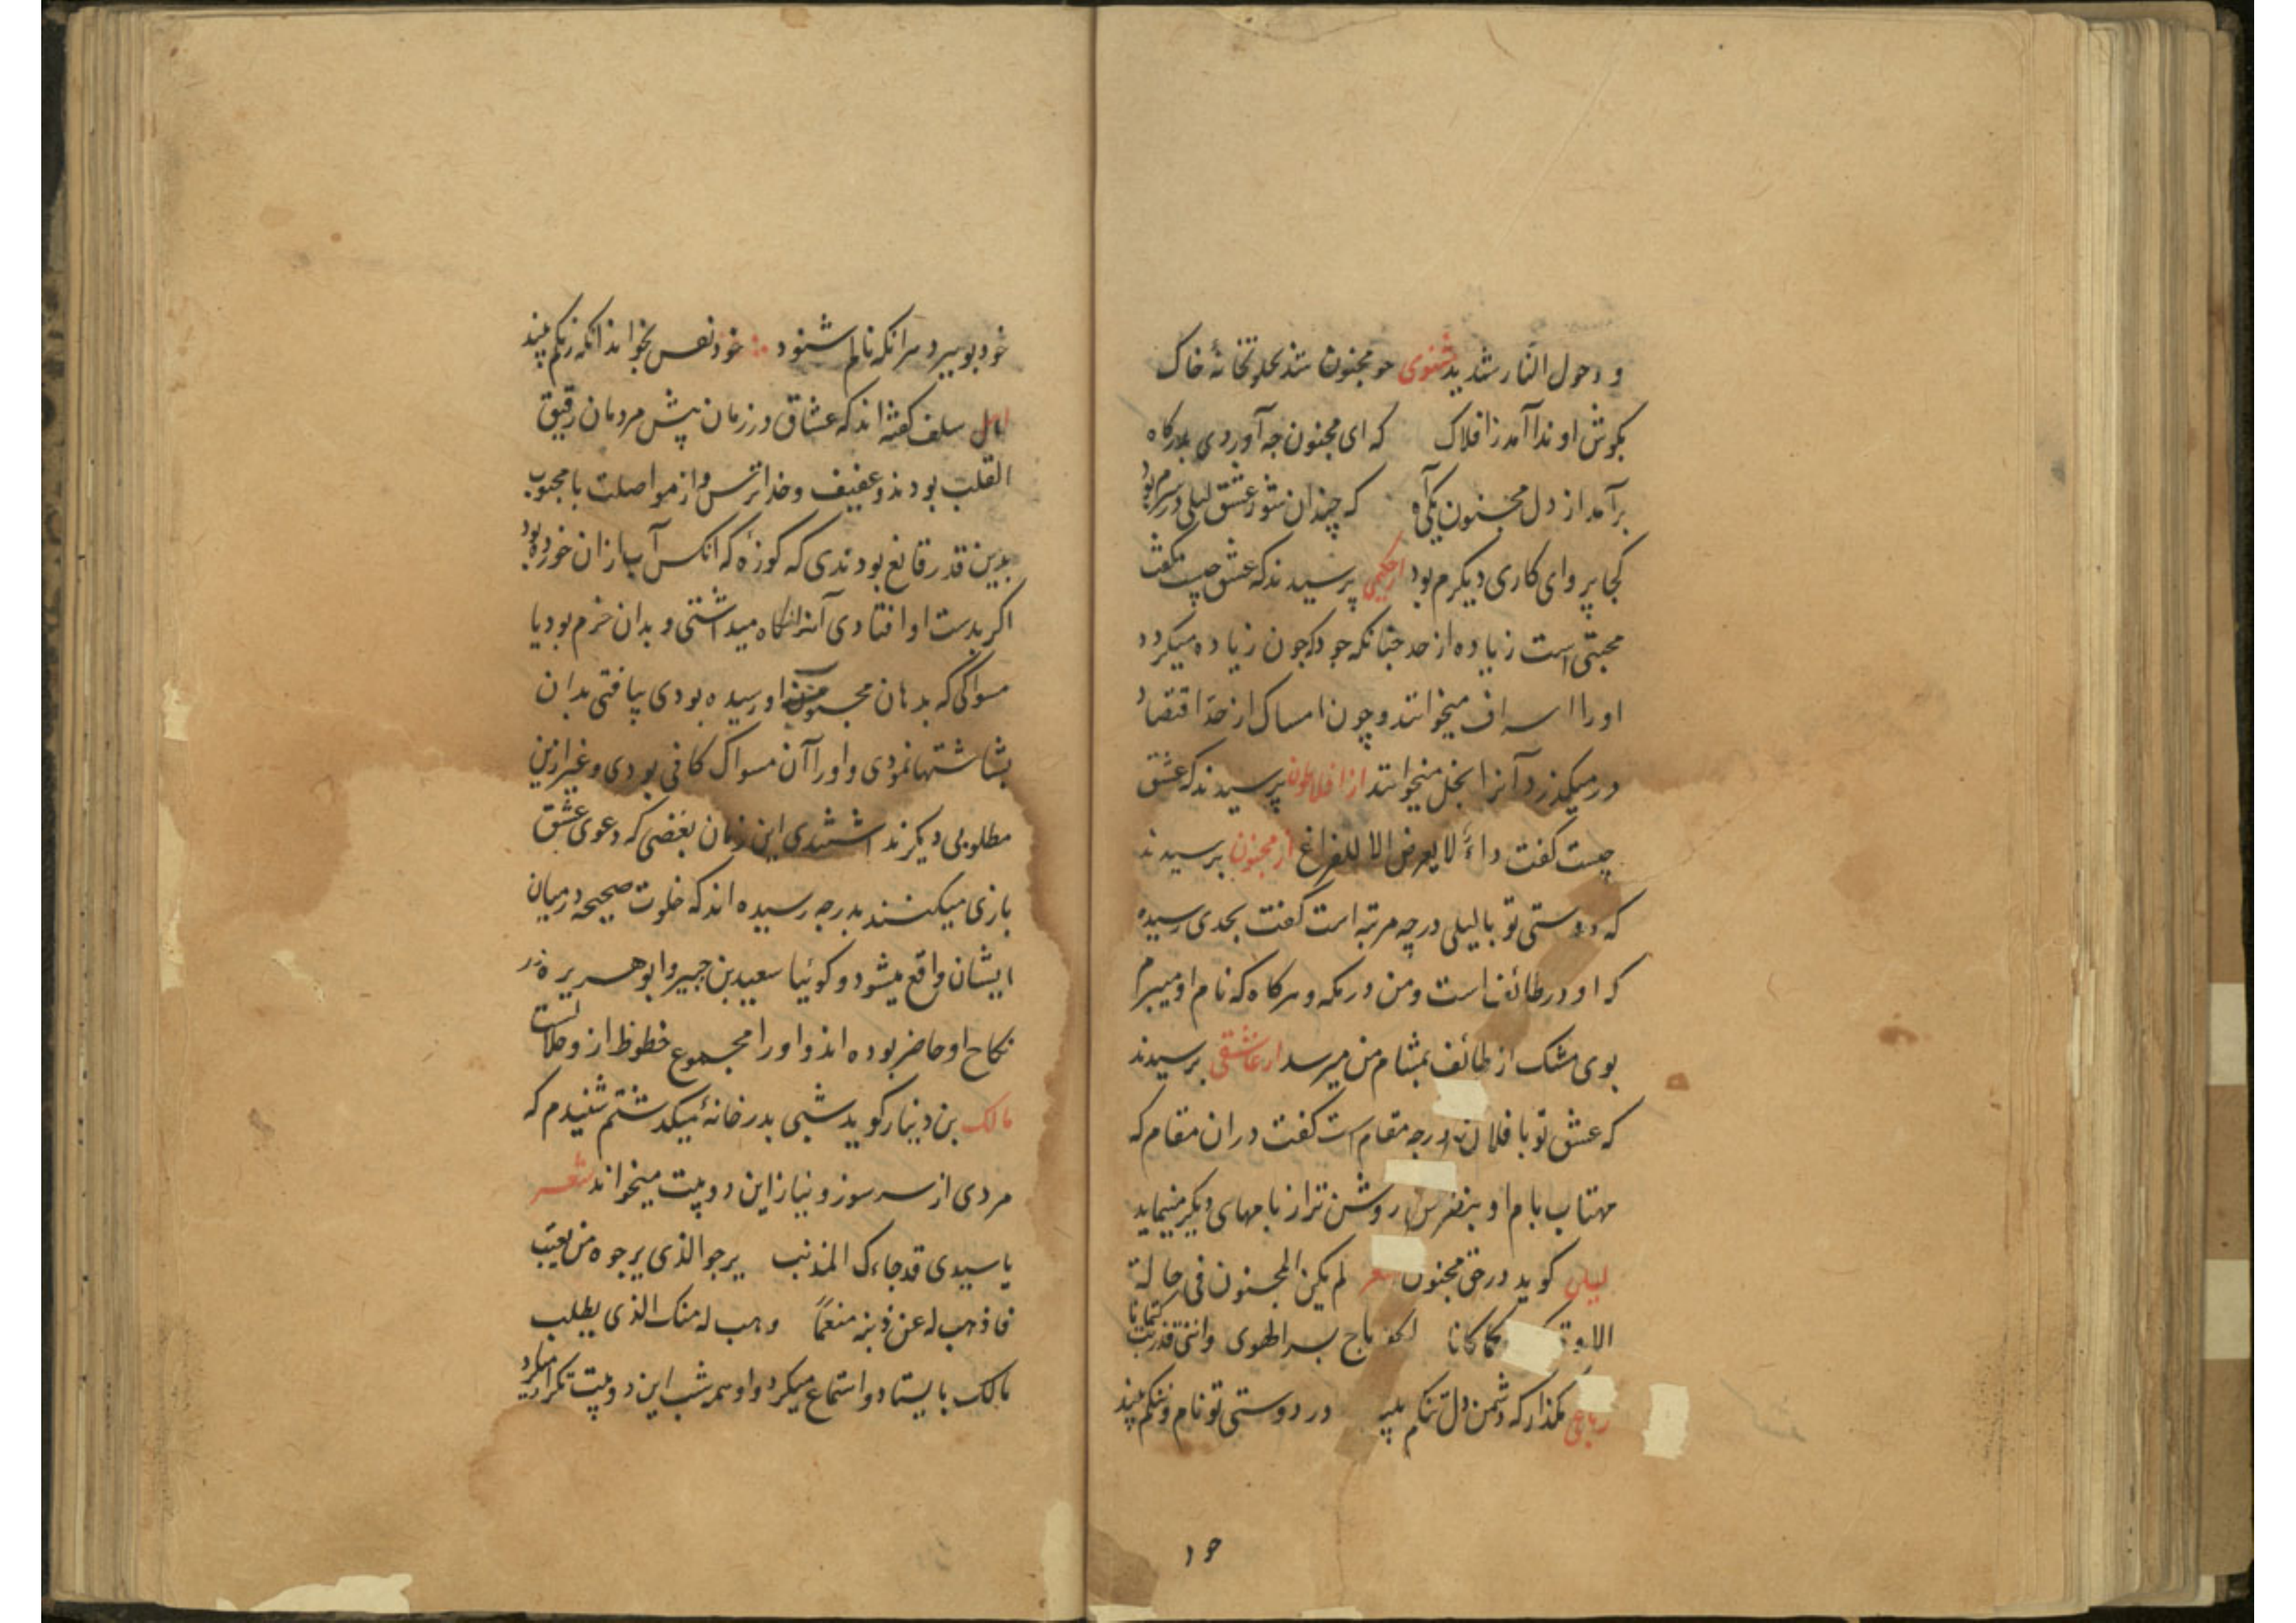 و دخول النار شدید مثنوی چو مجنون شد بخلوتخانهٔ خاک
بکوش او ندا آمد ز افلاک که ای مجنون چه آوردی بدرکاه
برآمد از دل مجنون یکی آه که چندان شور عشق لیلی در سرم بود
کجا پروای کاری دیکرم بود از حکیمی پرسیدند که عشق چیست گفت
محبتی است زیاده از حد چنانکه جود که چون زیاده میکردد
او را اسراف میخوانند و چون امساک از حد اقتصاد
درمیکذرد آنرا بخل میخوانند از افلاطون پرسیدند که عشق
چیست کفت داءٌ لا یعرض الا للفراغ از مجنون پرسیدند
که دوستی تو با لیلی در چه مرتبه است کفت بحدی رسیده
که او در طائف است و من در مکه و هرکاه که نام او میبرم
بوی مشک از طائف بمشام من میرسد از عاشقی پرسیدند
که عشق تو با فلان در چه مقام است کفت در ان مقام که
مهتاب بام او بنظر من روشن تر از بامهای دیکر مینماید
لیلی کوید در حق مجنون شعر لم یکن المجنون فی حالة
الا و کما کانا لکنه باح بسر الهوی واننی قد ذبت کتمانا
رباعی مکذار که دشمن دل تنکم بیند در دوستی تو نام و ننکم بیند
خود
خود بو ببرد هرانکه نالم شنود خود نفس بخواند انکه رنکم بیند
اهل سلف کفته اند که عشاق در زمان پیش مردمان رقیق
القلب بودند و عفیف و خداترس و از مواصلت با محبوب
بدین قدر قانع بودندی که کوزهٔ که انکس آب ازان خورده بود
اکر بدست او افتادی آنرا نکاه میداشتی و بدان خرم بود یا
مسواکی که بدهان محبوب او رسیده بودی بیافتی بدان
بشاشتها نمودی و او را آن مسواک کافی بودی و غیر ازین
مطلوبی دیکر نداشتندی این زمان بعضی که دعوی عشق
بازی میکنند بدرجه رسیده اند که خلوت صحیحه در میان
ایشان واقع میشود و کوئیا سعید بن جبیر و ابو هریره در
نکاح او حاضر بوده اند و او را مجموع حظوظ ازو حلالست
مالک بن دینار کوید شبی بدر خانهٔ میکدشتم شنیدم که
مردی از سر سوز و نیاز این دو بیت میخواند شعر
یا سیدی قد جاءک المذنب یرجو الذی یرجوه من یعتب
فاذهب له عن ذنبه منعمًا وهب له منک الذی یطلب
مالک بایستاد و استماع میکرد و او همه شب این دو بیت تکرار میکرد